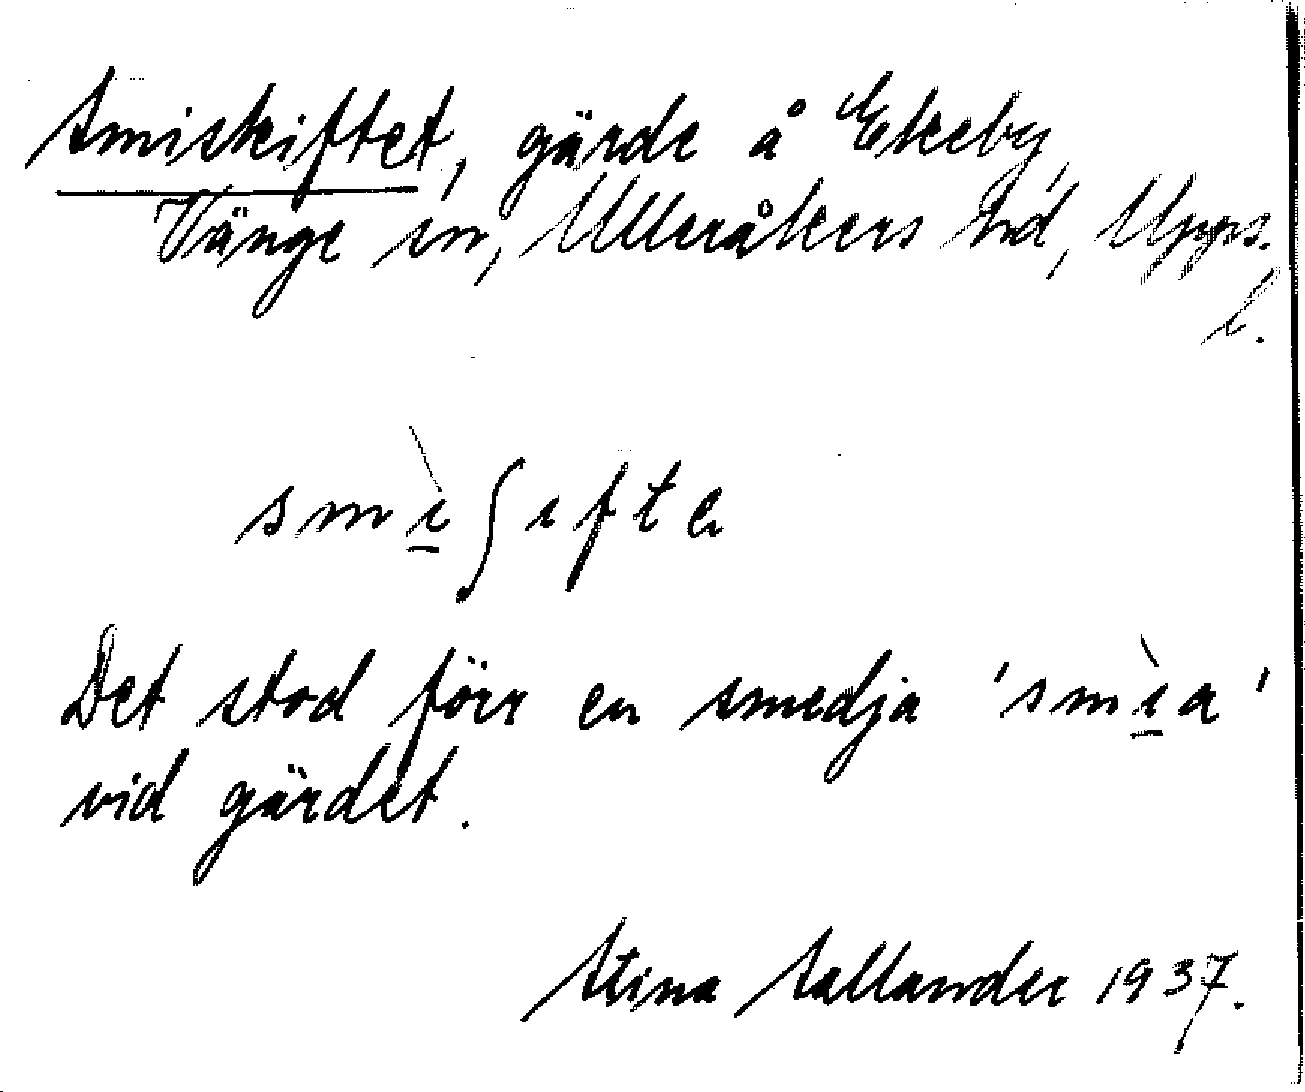 Smiskiftet, gärde å Ekeby,
Vänge sn, Ulleråkers hd, Upps.
l.
smì̠ʃıfte
Det stod förr en smedja 'smì̠a'
vid gärdet.
Stina Sallander 1937.